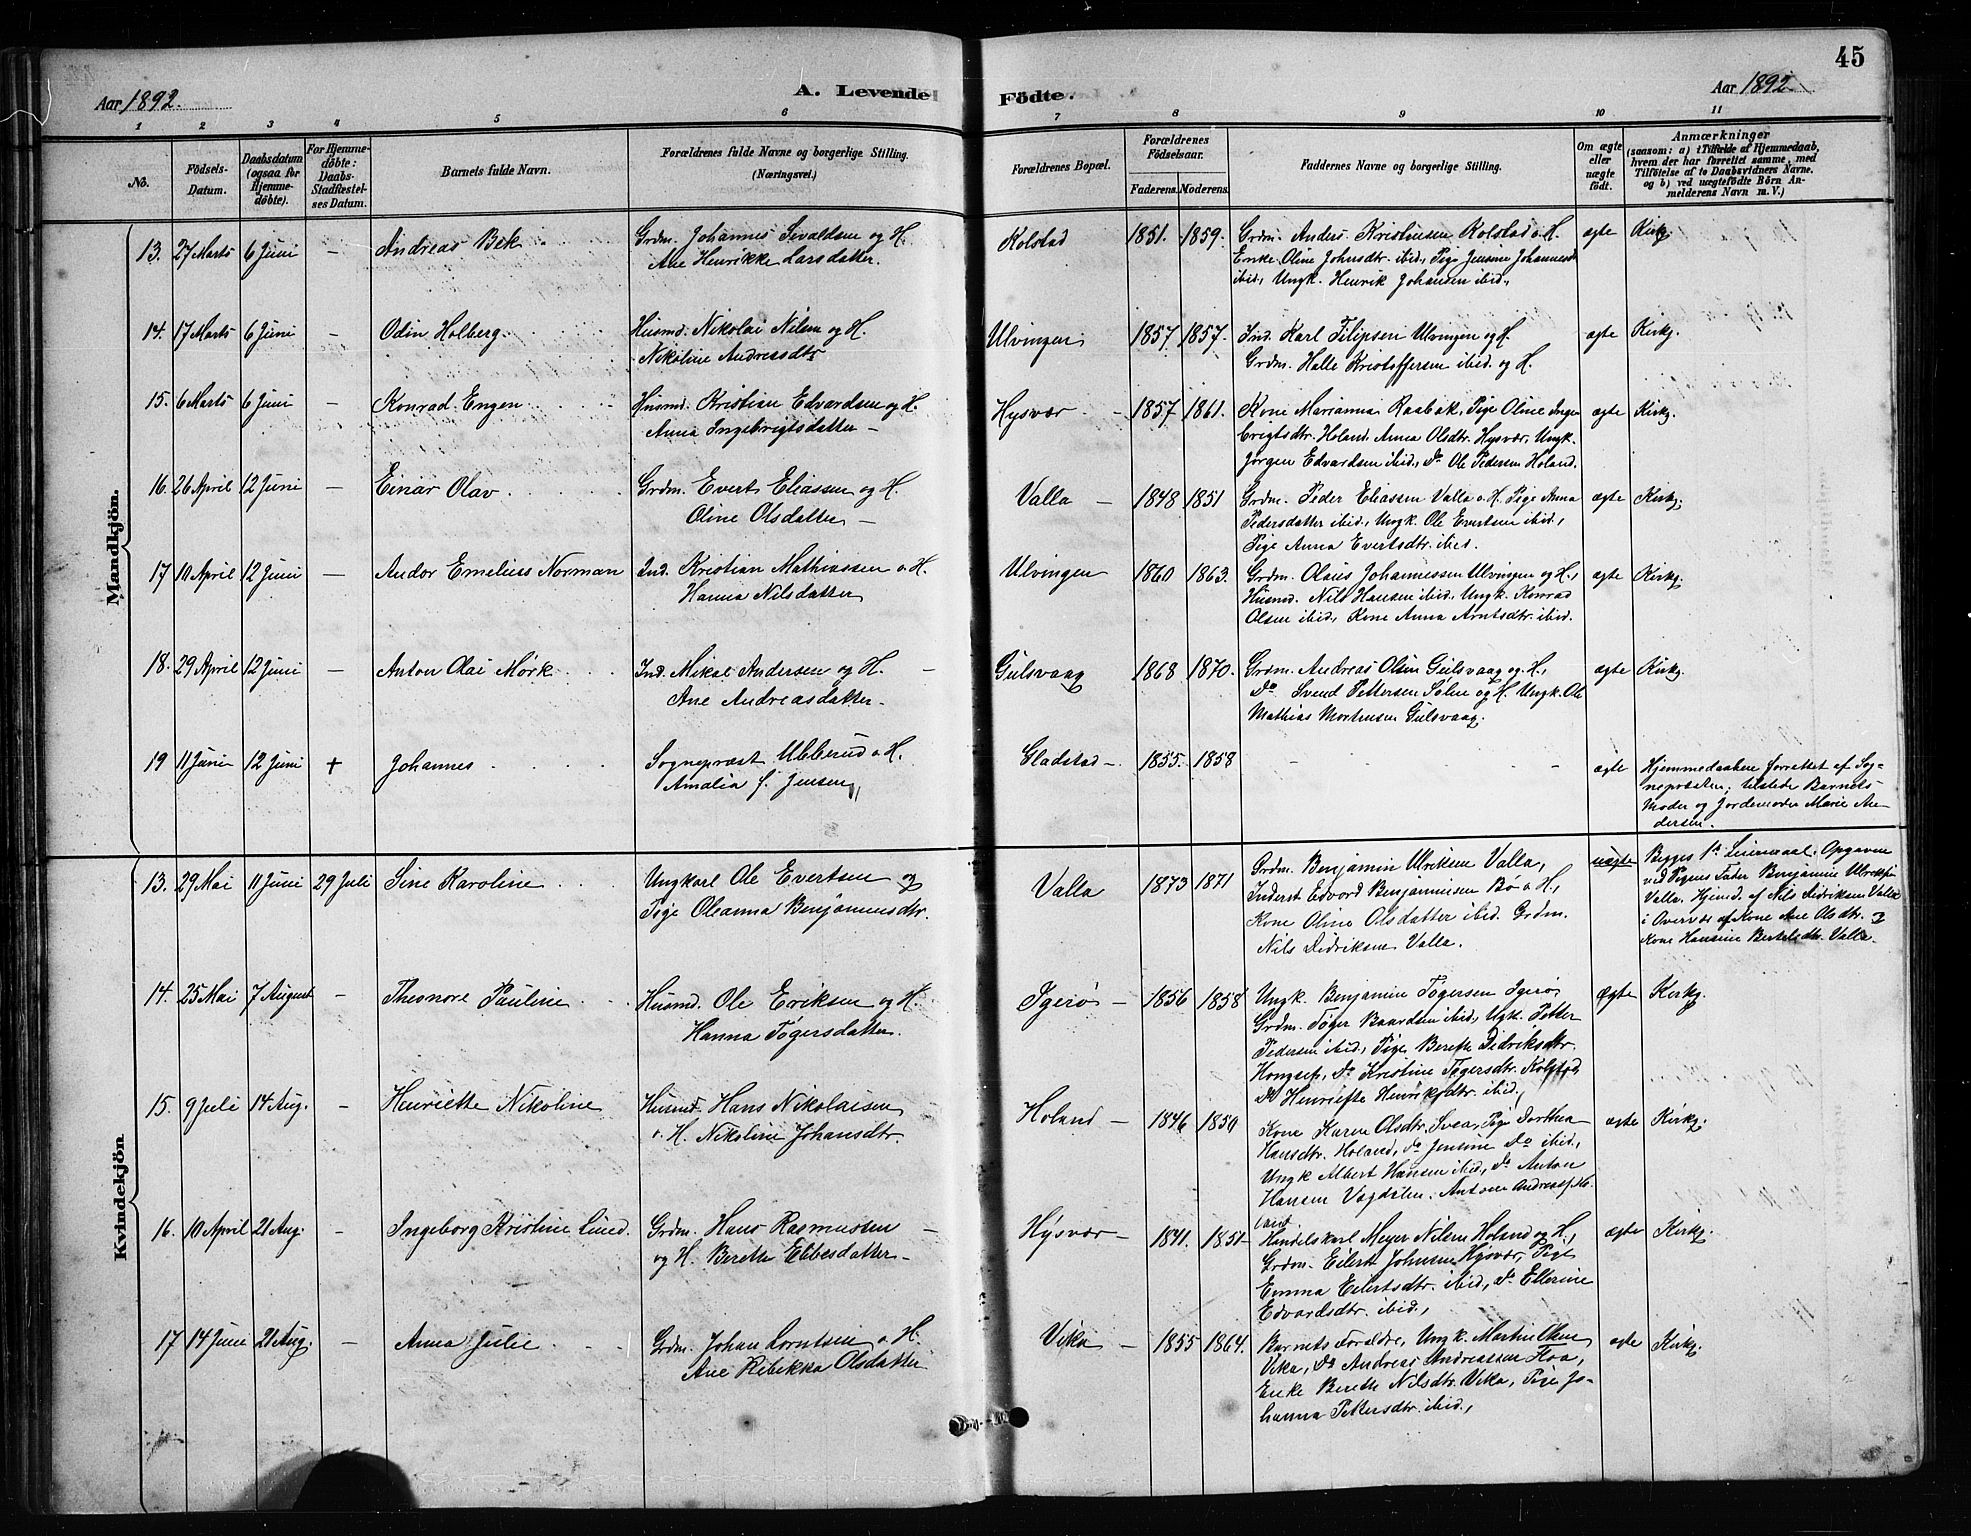 45
Aar 1892.
A. Levende Födte.
Aar 1892
1 2 3 4 5 6 7 8 9 10 11
No.
Födsels-Datum.
Daabsdatum (ogsaa for Hjemmedöbte).
For Hjemmedöbte: Daabs-Stadfæstelses Datum.
Barnets fulde Navn.
Forældrenes fulde Navne og borgerlige Stilling. (Næringsvei.)
Forældrenes Bopæl.
Forældrenes Födselsaar.
Faderens. Moderens.
Faddernes Navne og borgerlige Stilling.
Om ægte eller uægte födt.
Anmærkninger
(saasom: a) i Tilfælde af Hjemmedaab, hvem der har forrettet samme, med Tilföielse af to Daabsvidners Navne. og b) ved uægtefödte Börn Anmelderens Navn m. V.)
Mandkjön.
13. 27 Marts 6 Juni – Andreas Bek Grdm. Johannes Sivaldsen og H.
Ane Henrikke Larsdatter.
Kolstad 1851. 1859. Grdm. Anders Kristensen Kolstad o. H.
Enke Oline Johnsdtr. ibid., Pige Jensine Johannesd
ibid., Ungk. Henrik Johansen ibid.,
ægte Kirkj.
14. 17 Marts 6 Juni – Odin Holberg Husmd. Nikolai Nilsen og H.
Nikoline Andreasdtr
Ulvingen 1857 1857. Ind. Karl Filipsen Ulvingen og H.
Grdm. Halle Kristoffersen ibid. og H.
ægte Kirkj.
15. 6 Marts 6 Juni – Konrad Engen Husmd. Kristian Edvardsen og H.
Anna Ingebrigtsdatter –
Hysvær – 1857 1861. Kone Marianna Raabak, Pige Oline Inge
brigtsdtr. Holand, Anna Olsdtr. Hysvær, Ungk.
Jörgen Edvardsen ibid., Do Ole Pedersen Holand.
ægte Kirkj.
16. 26 April 12 Juni – Einar Olav Grdm. Evert Eliassen og H.
Oline Olsdatter –
Valla – 1848 1851 Grdm. Peder Eliassen Valla o. H. Pige Anna
Pedersdatter ibid., Ungk. Ole Evertsen ibid.,
Pige Anna Evertsdtr. ibid.
ægte Kirkj.
17 10 April 12 Juni – Andor Emelius Norman Ind. Kristian Mathiassen o H.
Hanna Nilsdatter
Ulvingen 1860 1863. Grdm. Olaus Johannessen Ulvingen og H.,
Husmd. Nils Hansen ibid., Ungk. Konrad
Olsen ibid., Kone Anna Arntsdtr. ibid.
ægte Kirkj.
18. 29 April 12 Juni – Anton Olai Mörk Ind. Mikal Andersen og H. –
Ane Andreasdatter –
Gulsvaag 1868 1870. Grdm. Andreas Olsen Gulsvaag og H.,
Do Svend Pettersen Sølen og H. Ungk. Ole
Mathias Mortensen Gulsvaag.
ægte Kirkj.
19 11 Juni 12 Juni + Johannes Sognepræst Ubberud o H.
Amalia f. Jensen
Gladstad – 1855. 1858 – –
ægte Hjemmedaaben forrettet af Sog-
nepræsten; tilstede Barnets
Moder og Jordemoder Marie An-
dersen.
Kvindekjön.
13. 29 Mai 11 Juni 29 Juli Sine Karoline Ungkarl Ole Evertsen og
Pige Oleanna Benjaminsdtr.
Valla 1873 1871 Grdm. Benjamin Ulriksen Valla,
Inderst Edvard Benjaminsen Bø o H.,
Kone Oline Olsdatter ibid. Grdm.
Nils Didriksen Valla.
uægte Begges 1ste Leiermaal. Opgaven
ved Pigens Fader Benjamin Ulriksen
Valla. Hjemd. af Nils Didriksen Valla
i Overvær af Kone Ane Olsdtr. og
Kone Hansine Bertelsdtr. Valla.
14. 25 Mai 7 August – Theonore Pauline Husmd. Ole Eriksen og H.
Hanna Tøgersdatter.
Igerø – 1856 1858 Ungk. Benjamin Tøgersen Igerø,
Grdm. Tøger Baardsen ibid., Ugk. Petter
Pedersen ibid., Pige Berethe Didriksdtr.
Kongsep, Do Kristine Tøgersdtr. Kolstad,
Do Henriette Henriksdtr. ibid.,
Ægte Kirkj.
15. 9 Juli 14 Aug. – Henriette Nikoline Husmd. Hans Nikolaisen
o. H. Nikoline Johansdtr.
Holand – 1846 1850 Kone Karen Olsdtr. Svea, Pige Dorthea
Hansdtr. Holand, Do Jensine Do ibid.,
Ungk Albert Hansen ibid., Do Anton
Hansen Vaagdalen. Anton Andreass. Ho-
land
ægte Kirkj.
16. 10 April 21 Aug. – Ingeborg Kristine Lund. Grdm. Hans Rasmussen –
og H. Berethe Ebbesdatter –
Hysvær – 1841. 1851 Handelskarl Meyer Nilsen Holand og H.,
Grdm. Eilert Johnsen Hysvær, Pige
Emma Eilertsdtr. ibid., Do Ellerine
Edvardsdtr. ibid.,
ægte Kirkj.
17 14 Juni 21 Aug. – Anna Julie Grdm. Johan Lorntsen o. H.
Ane Rebikka Olsdatter
Vika – 1855 1864. Barnets Forældre, Ungk. Martin Olsen
Vika, Do Andreas Andreassen Floa,
Enke Bereth Nilsdtr. Vika, Pige Jo-
hanna Pettersdtr. ibid.,
ægte Kirkj.